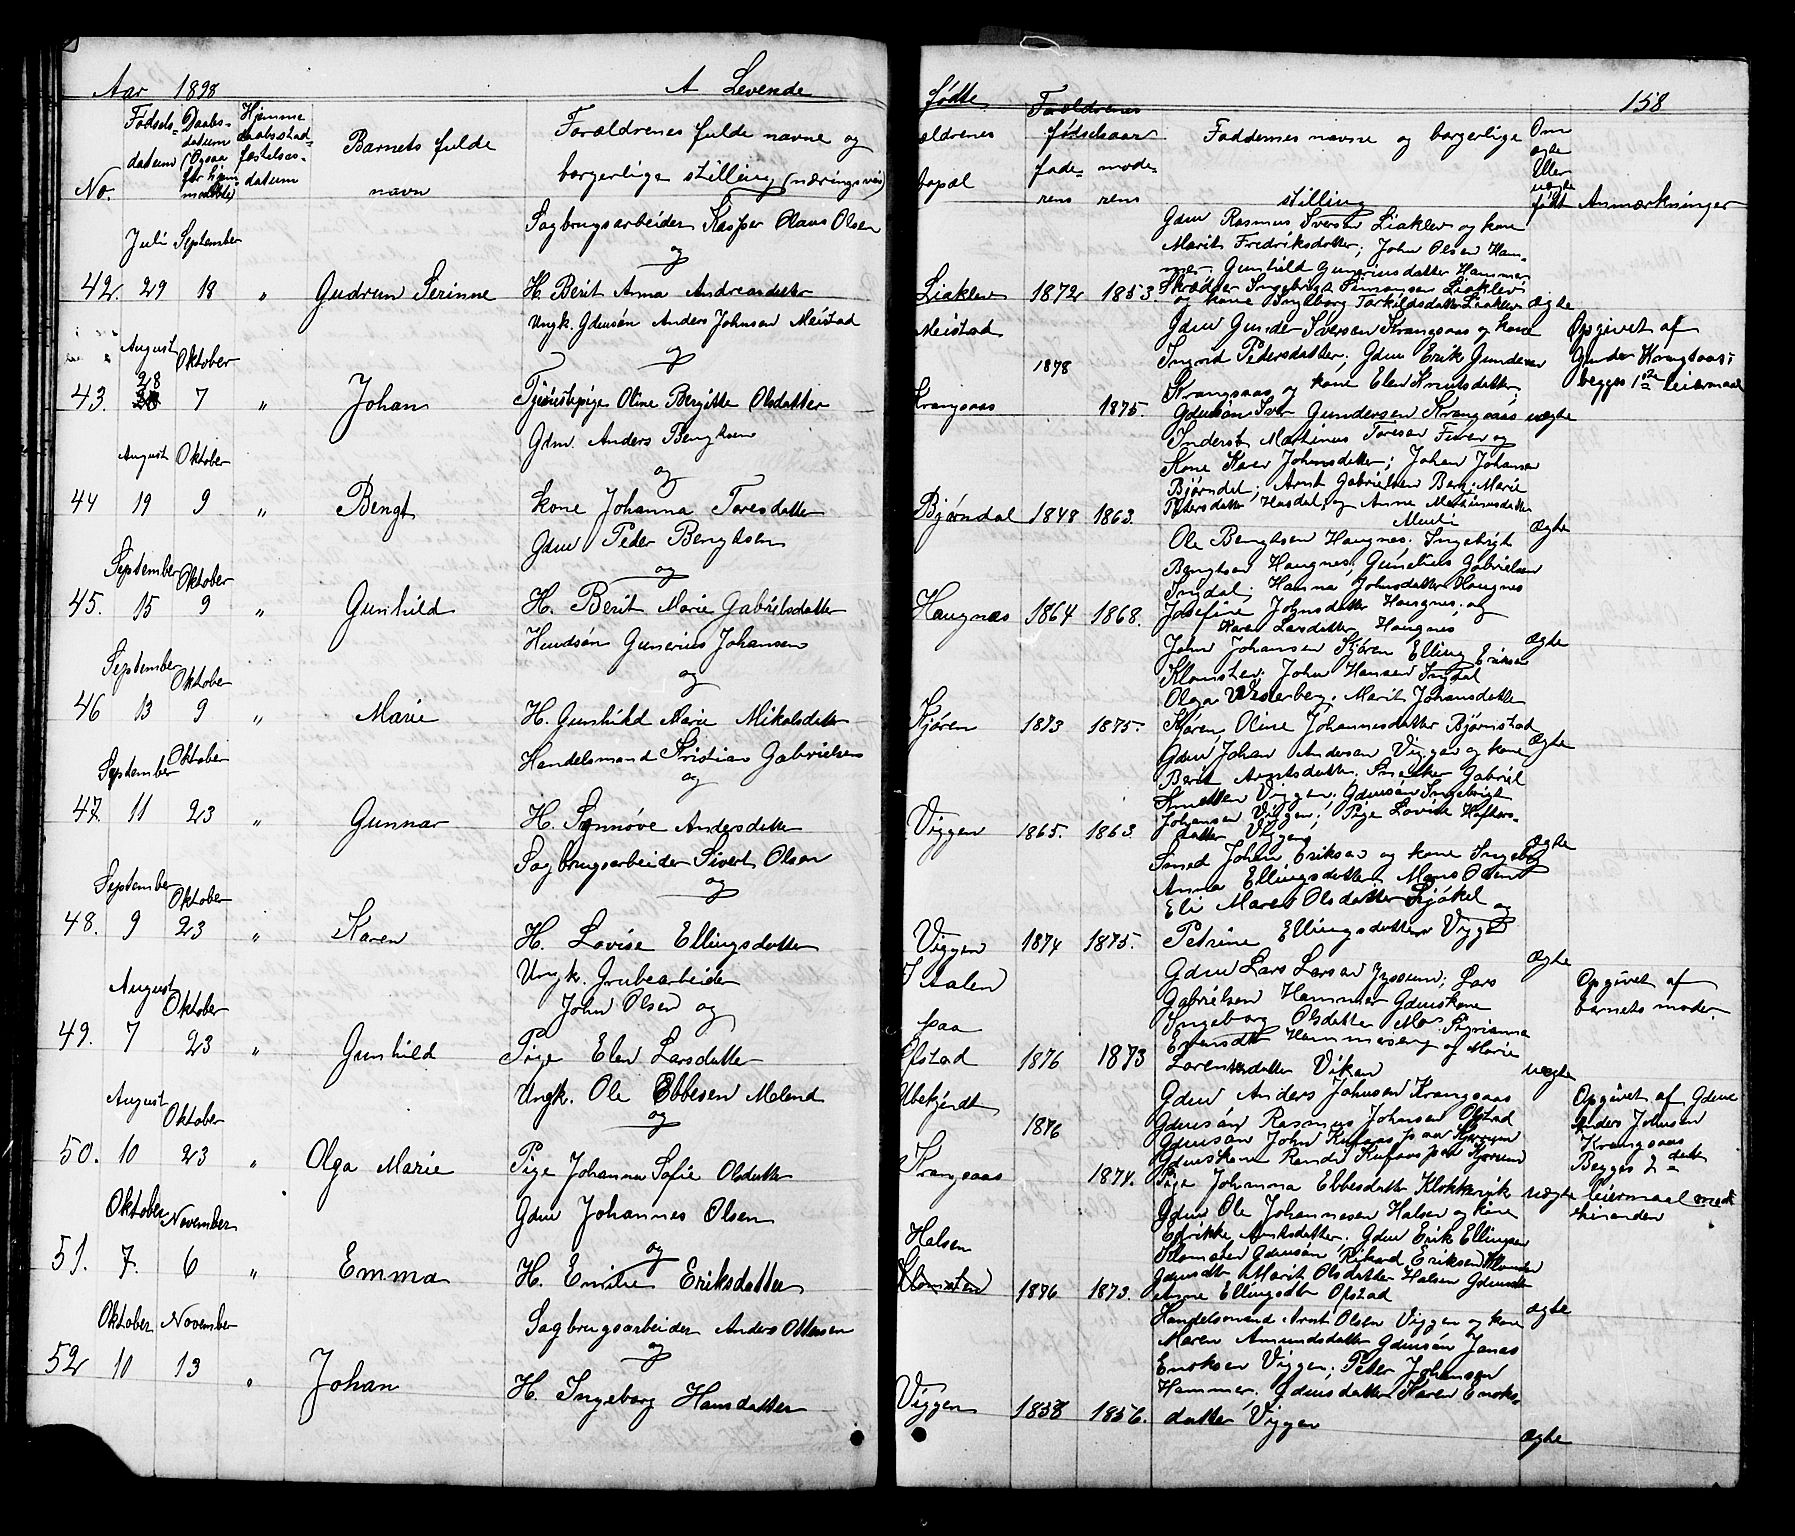 Aar 1898 A Levende
No.
Fødsels-
datum
Daabs-
datum
(Ogsaa
for hjem
Hjemme
daabsstad-
festelses-
datum
Barnets fulde
navn
Forældrenes fulde navne og
borgerlige stilling (næringsvei)
Juli September
Sagbrugsarbeider Kasper Olaus Olsen
og
42. 29 18 " Gudrun Serinne H. Berit Anna Andreasdatter
August Oktober
Ungk. Gdmsøn Anders Johnsen Meistad
og
43. 28 7 " Johan Tjenestepige Oline Bergitte Olsdatter
August Oktober
Gdm. Anders Bengtsen
og
44 19 9 " Bengt Kone Johanna Toresdatter
September Oktober
Gdm Peder Bengtsen
og
45. 15 9 " Gunhild H. Berit Marie Gabrielsdatter
September Oktober
Husdsøn Gunerius Johansen
og
46 13 9 " Marie H. Gunhild Marie Mikalsdatter
September Oktober
Handelsmand Kristian Gabrielsen
og
47. 11 23 " Gunnar H. Synnøve Andersdatter
September Oktober
Sagbrugsarbeider Sivert Olsen
og
48. 9 23 " Karen H. Lovise Ellingsdatter
August Oktober
Ungk. Grubearbeider
John Olsen og
49. 7 23 " Gunhild Pige Elen Larsdatter
August Oktober
Ungk. Ole Ebbesen Meland
og
50. 10 23 " Olga Marie Pige Johanna Sofie Olsdatter
Oktober November
Gdm Johannes Olsen
og
51. 7. 6 " Emma H. Emilie Eriksdatter
Oktober November
Sagbrugsarbeider Anders Ottesen
og
52 10 13 " Johan H. Ingeborg Hansdatter
fødte 158
Forældrenes
ældrenes
bopæl
fødselsaar
fade- mode-
rens rens
Faddernes navne og borgerlige
stilling
Om
ægte
eller
uægte
født
Anmærkninger
Gdm Rasmus Iversen Liaklev og kone
Marit Fredriksdatter; John Olsen Ham-
mer. Gunhild Guneriusdatter Hammer
Skrædder Ingebrigt Liaklev
Liaklev 1872 1853
og kone Ingeborg Torkildsdatter Liaklev ægte
Meistad
Gdm Gunder Iversen Krangsaas og kone
Opgivet af
1878
Ingrid Pedersdatter; Gdm Erik Gundersen
Gunder Krangsaas;
Krangsaas og kone Elen Knutsdatter;
begges 1ste leiermaal
Krangsaas 1875.
Gdmsøn Iver Gundersen Krangsaas uægte
Inderst Martinus Toresen Furen og
Kone Karen Johnsdatter; Johan Johansen
Bjørndal; Arnt Gabrielsen Berg; Marie
Pedersdatter Hasdal; og Anne Martinusdatter
Bjørndal 1848 1863.
ægte
Ole Bengtsen Haugnes. Ingebrigt
Bengtsen Haugnes. Gabrielsen
Inndal; Hanna Johnsdatter Haugnes
Haugnæs 1864 1868.
Josefine Johnsdatter Haugnes; og
Karen Larsdatter Haugnes
ægte
John Johansen Kjøren Elling Eriksen
Klomsten; John Hansen
Olga Westerberg. Marit Johansdatter
Kjøren 1873 1875.
Kjøren, Oline Johannesdatter Bjørnstad
ægte
Gdm Johan Andersen Viggen og kone
Berit Arntsdatter. Snedker Gabriel
Knutsen Viggen. Gdmsøn Ingebrigt
Johansen Viggen; Pige Lovise
Viggen 1865. 1863.
datter Viggen
ægte
Smed Johan Eriksen og kone Ingeborg
Anna Ellingsdatter Mons Olsen
Eli Maren Olsdatter og
Viggen 1874 1875.
Petrine Ellingsdatter Viggen
ægte
paa
Gdm Lars Larsen Lars
Opgivet af
Gabrielsen Hammer Gdmskone
barnets moder.
Ingeborg Olsdatter Mo
Hammersberg og Marie
Ofstad 1876 1873
Lorentsdatter Vikan
uægte
Ubekjendt
Gdm Anders Johnsen Krangsaas
Opgivet af Gdm
1876
Gdmsøn Rasmus Johnsen Ofstad
Anders Johnsen
Gdmsøn John
Krangsaas
Gdmskone Randi
Begges 2det
Krangsaas 1874.
Pige Johanna Ebbesdatter Klokkervik uægte leiermaal med
hinanden
Halsen
Gdm Ole Johannesen Halsen og kone
Arntsdatter. Gdm Erik Ellingsen
Klomsten Gdmsøn Rikard Eriksen Klomsten
Gdmdtr Marit Olsdatter Halsen Gdmdtr
Klomsten 1876 1873.
Anne Ellingsdtr Opstad
ægte
Handelsmand Arnt Olsen Viggen og kone
Maren Amundsdatter Gdmsøn Jonas
Enoksen Viggen; Peter Johansen
Hammer. Gdmsdatter Karen Enoks-
Viggen 1858 1856.
datter Viggen
ægte